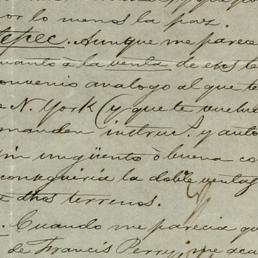 por lo menos la paz.
tepec. Aunque me parece
cuanto a la venta de etos te
convenio analogo al que te
e N. York (y que te vuelve
manden instruc.s y auto
un ungüento ò buena co
conseguiria la doble ventaj
e dhos terrenos.
. Cuando me parecia qu
de Francis Perry, me aca